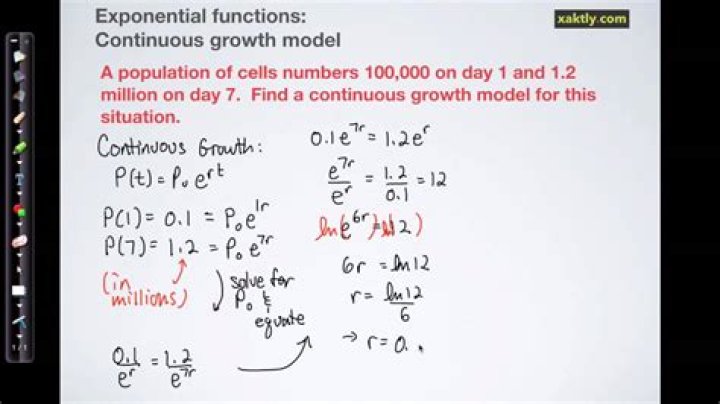 Exponential functions:
Continuous growth model
xaktly.com
A population of cells numbers 100,000 on day 1 and 1.2
million on day 7. Find a continuous growth model for this
situation.
Continuous Growth:
P(t) = P₀ e^rt
P(1) = 0.1 = P₀ e^1r
P(7) = 1.2 = P₀ e^7r
(in
millions)
solve for
P₀ &
equate
0.1/e^r = 1.2/e^7r
0.1e^7r = 1.2e^r
e^7r/e^r = 1.2/0.1 = 12
ln(e^6r) = ln(12)
6r = ln12
r = ln12/6
→ r = 0.
T
1/1